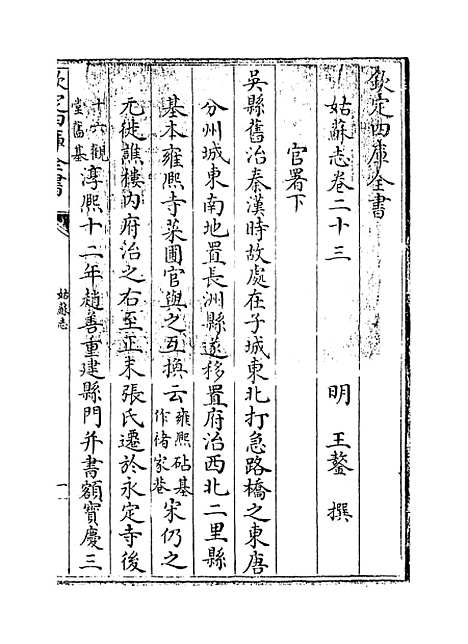 欽定四庫全書
姑蘇志卷二十三
明 王鏊 撰
官署下
吳縣舊治秦漢時故處在子城東北打急路橋之東唐
分州城東南地置長洲縣遂移置府治西北二里縣
基本雍熙寺菜圃官與之互換云雍熙砧基作褚家巷宋仍之
元徙譙樓内府治之右至正末張氏遷於永定寺後
十六觀堂舊基淳熙十二年趙善重建縣門并書額寳慶三
欽定四庫全書
姑蘇志
一